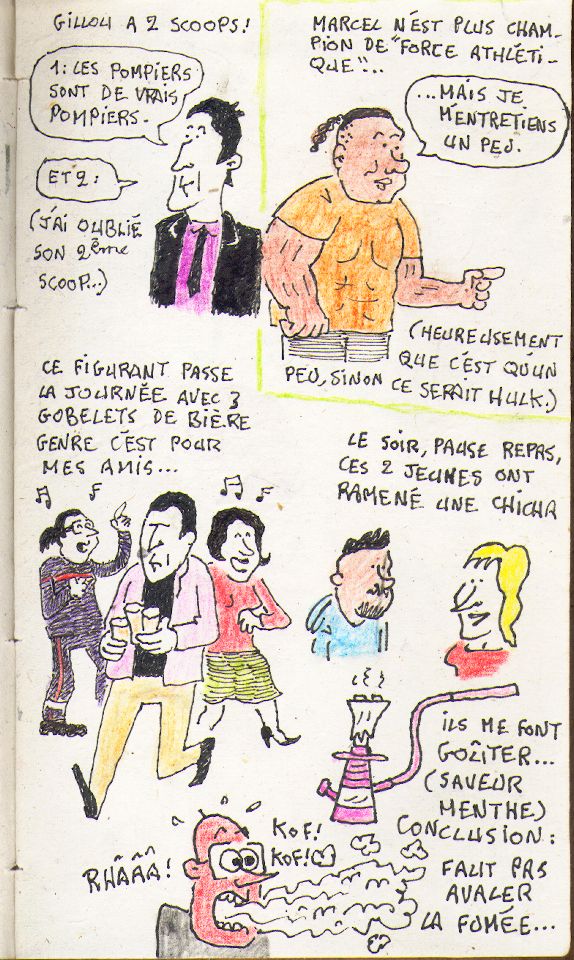 GILLOU A 2 SCOOPS!
1: LES POMPIERS
SONT DE VRAIS
POMPIERS.
ET 2:
(J'AI OUBLIÉ
SON 2ème
SCOOP..)
MARCEL N'EST PLUS CHAM-
PION DE "FORCE ATHLÉTI-
QUE"...
...MAIS JE
M'ENTRETIENS
UN PEU.
(HEUREUSEMENT
QUE C'EST QU'UN
PEU, SINON CE SERAIT HULK.)
CE FIGURANT PASSE
LA JOURNÉE AVEC 3
GOBELETS DE BIÈRE
GENRE C'EST POUR
MES AMIS...
LE SOIR, PAUSE REPAS,
CES 2 JEUNES ONT
RAMENÉ UNE CHICHA
ILS ME FONT
GOÛTER...
(SAVEUR
MENTHE)
CONCLUSION:
FAUT PAS
AVALER
LA FUMÉE...
RHÂÂÂ!
KOF!
KOF!